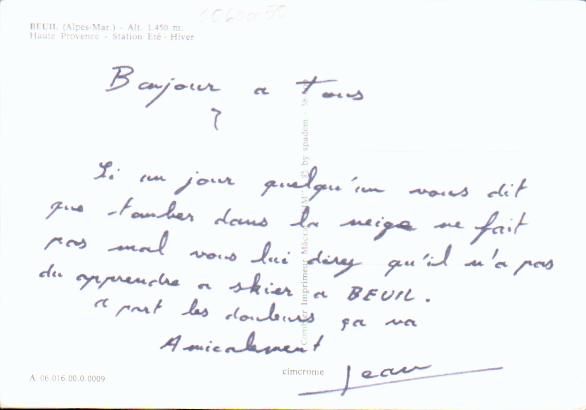 BEUIL (Alpes-Mar.) - Alt. 1.450 m.
Haute Provence - Station Eté - Hiver
Bonjour a Tous
Si un jour quelqu'un vous dit
que tomber dans la neige ne fait
pas mal vous lui direz qu'il n'a pas
du apprendre a skier a BEUIL.
a part les douleurs ça va
Amicalement
Jean
A. 06.016.00.0.0009
cimcrome
Combier Imprimeur Mâcon © by spadem